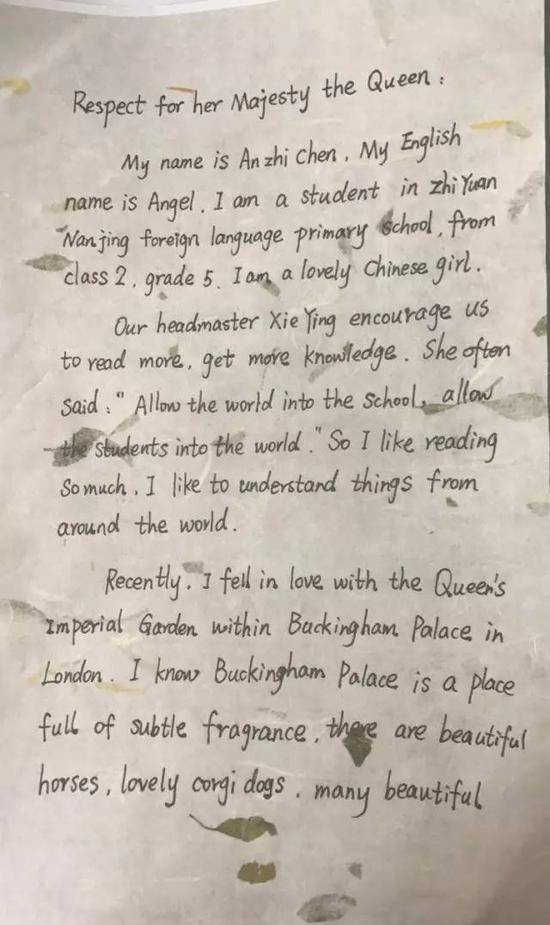 Respect for her Majesty the Queen :
My name is Anzhi Chen. My English
name is Angel. I am a student in zhiYuan
Nanjing foreign language primary school, from
class 2, grade 5. I am a lovely Chinese girl.
Our headmaster Xie Ying encourage us
to read more, get more knowledge. She often
said : " Allow the world into the school, allow
the students into the world ." So I like reading
so much. I like to understand things from
around the world.
Recently. I fell in love with the Queen's
Imperial Garden within Buckingham Palace in
London. I know Buckingham Palace is a place
full of subtle fragrance, there are beautiful
horses, lovely corgi dogs. many beautiful